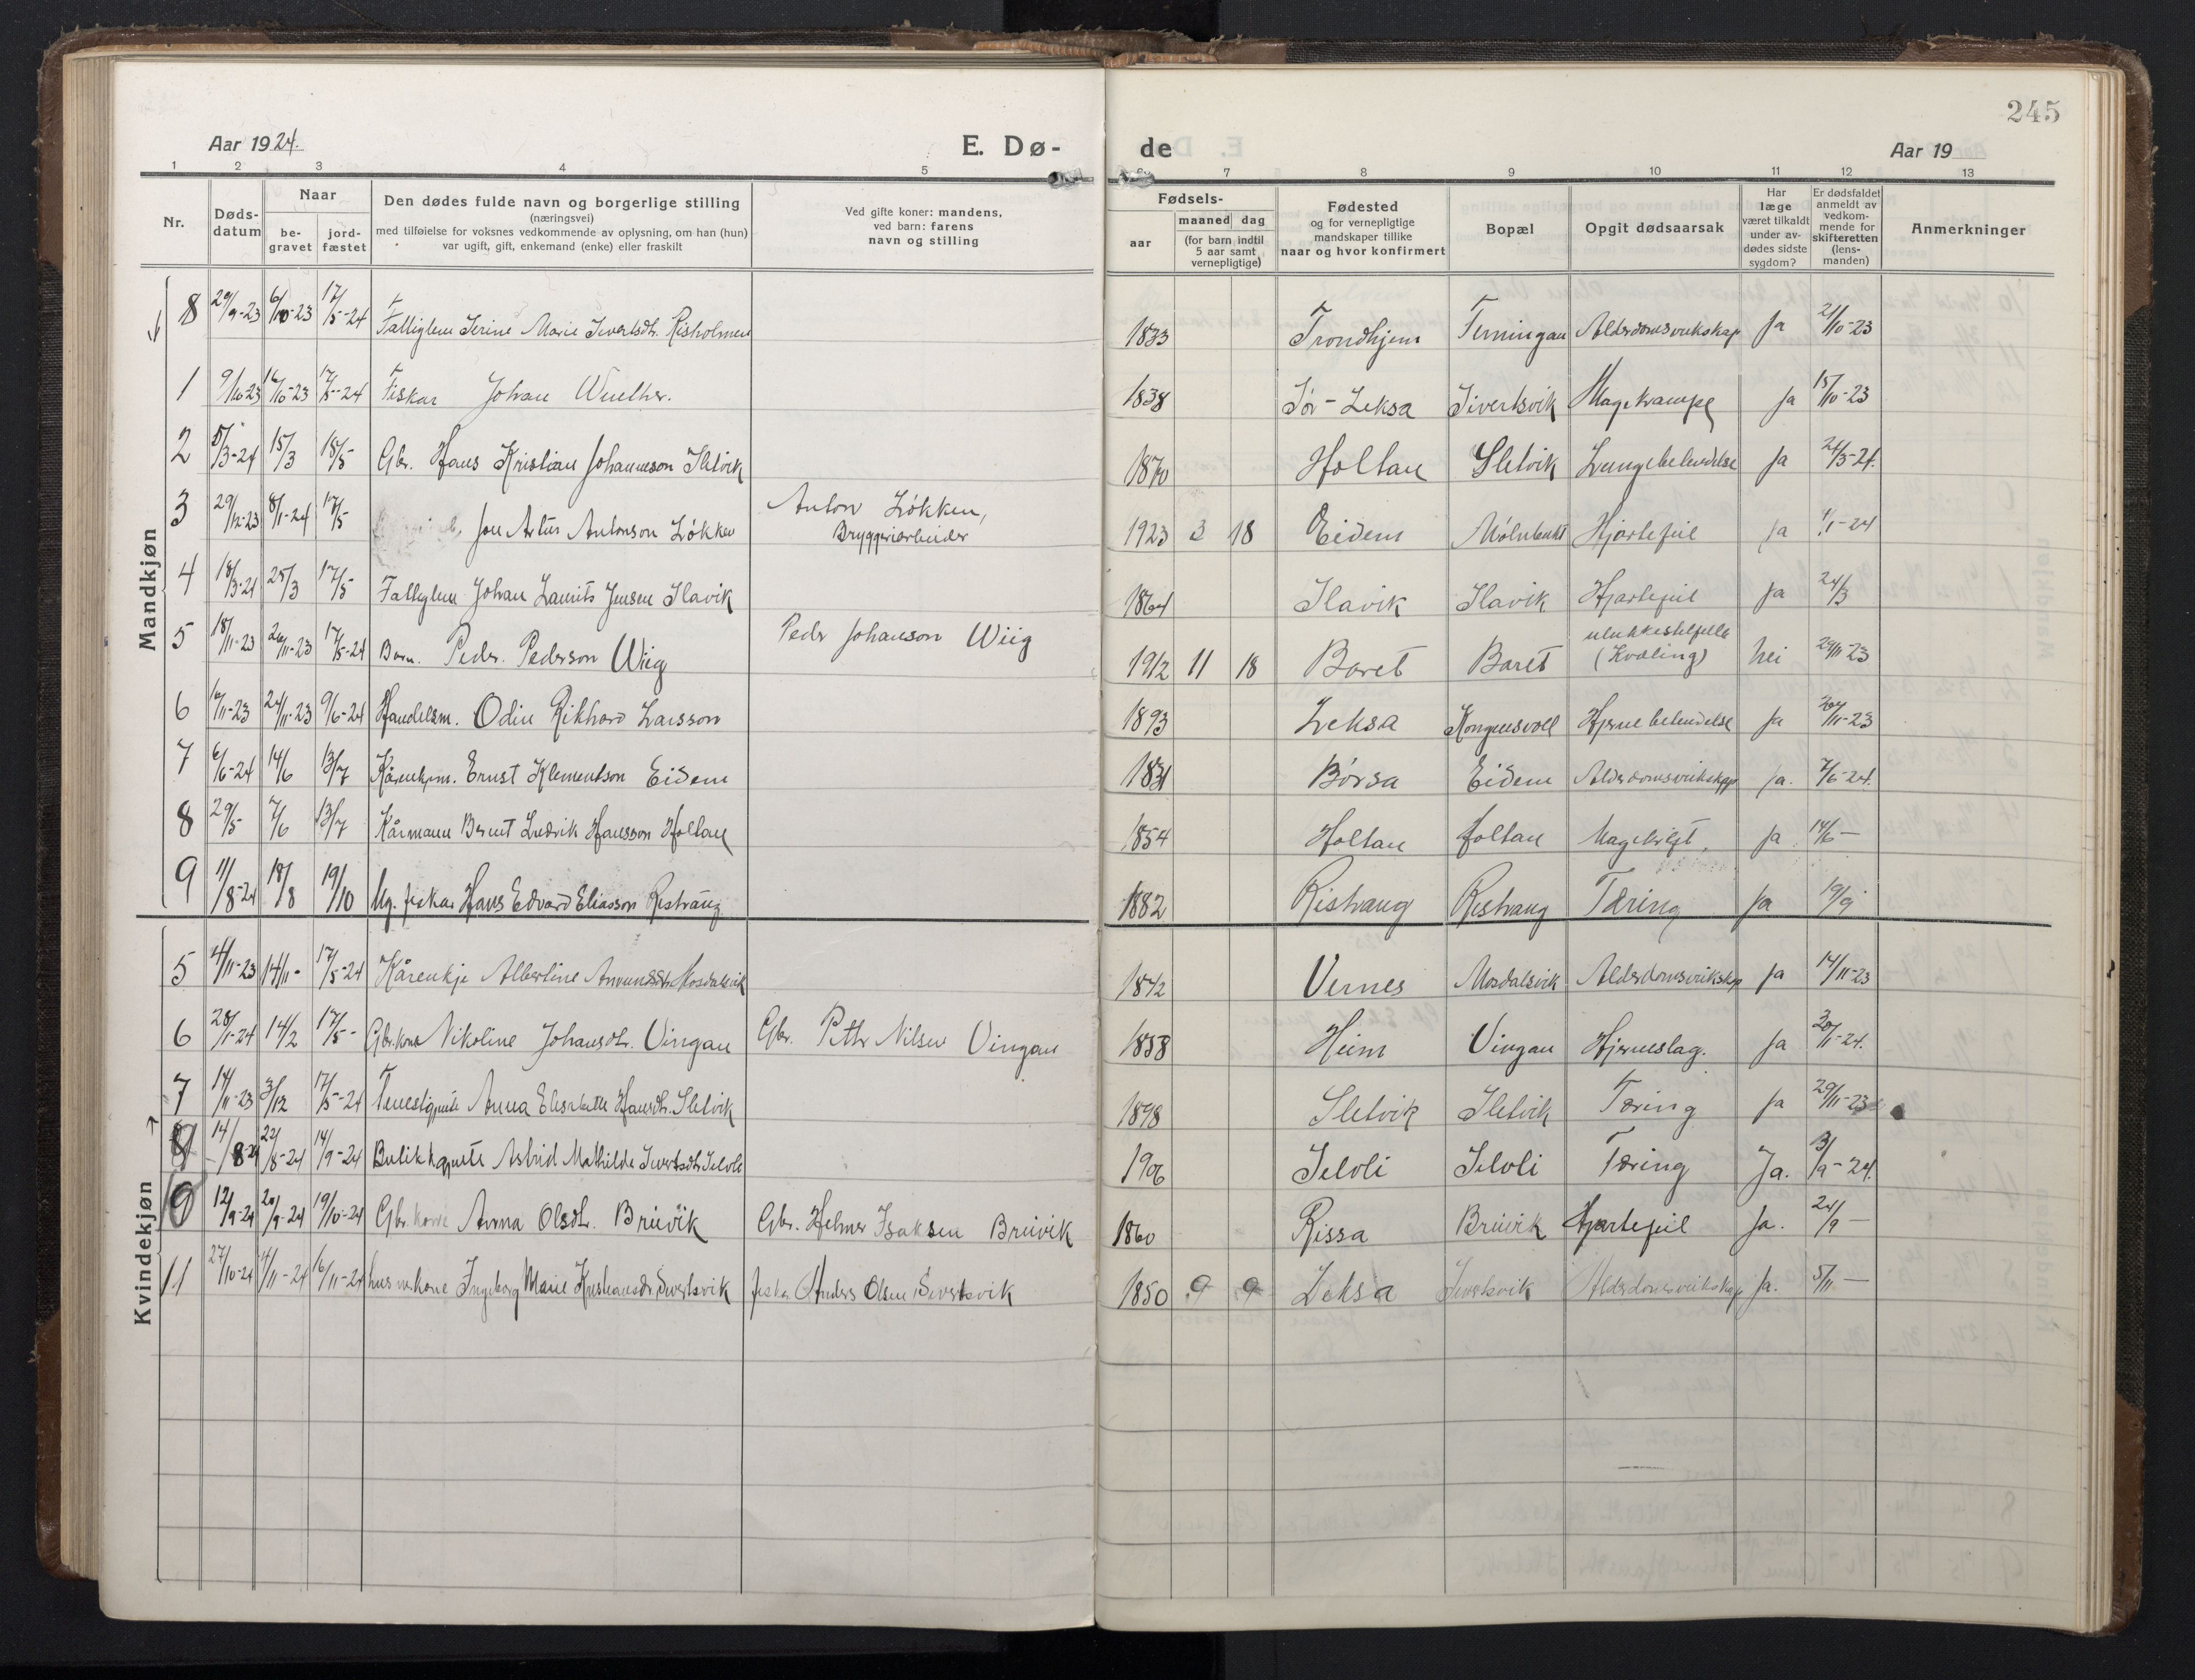 245
Aar 1924.
E. Dø-
de
Aar 19
1 2 3 4 5 6 7 8 9 10 11 12 13
Nr.
Døds-
datum
Naar
be-
gravet
jord-
fæstet
Den dødes fulde navn og borgerlige stilling
(næringsvei)
med tilføielse for voksnes vedkommende av oplysning, om han (hun)
var ugift, gift, enkemand (enke) eller fraskilt
Ved gifte koner: mandens,
ved barn: farens
navn og stilling
Fødsels-
aar
maaned dag
(for barn indtil
5 aar samt
vernepligtige)
Fødested
og for vernepligtige
mandskaper tillike
naar og hvor konfirmert
Bopæl
Opgit dødsaarsak
Har
læge
været tilkaldt
under av-
dødes sidste
sygdom?
Er dødsfaldet
anmeldt av
vedkom-
mende for
skifteretten
(lens-
manden)
Anmerkninger
Mandkjøn
8 29/9-23 6/10-23 17/5-24 Falliglem Serine Marie Ivertsdtr. Risholmen 1833 Trondhjem Terningan Alderdomsveikskap Ja 21/10-23
1 9/10-23 16/10-23 17/5-24 Fiskar Johan 1838 Sør-Leksa Sivertsvik Magekrampe Ja 15/10-23
2 5/3-24 15/3 18/5 Gbr. Hans Kristian Johannson Sletvik 1870 Holtan Sletvik Lungebetendelse Ja 24/3-24.
3 29/12-23 8/1-24 17/5 Jon Artur Antonson Løkken Anton Løkken,
Bryggeriarbeider 1923 3 18 Eidem Mølnbukt Hjartefeil Ja 4/1-24
4 18/3-24 25/3 17/5 Falliglem Johan Laurits Jensen Ilavik 1864 Ilavik Ilavik Hjartefeil Ja 24/3
5 18/11-23 26/11-23 17/5-24 Barn. Peder Pederson Wiig Peder Johanson Wiig 1912 11 18 Baret Baret ulukkestilfelle
(Kvæling) Nei 29/11-23
6 16/11-23 24/11-23 9/6-24 Handelsm. Odin Rikhard Larsson 1893 Leksa Kongensvoll Hjernebetendelse Ja 20/11-23
7 6/6-24 14/6 13/7 Kårenkjm. Ernst Klementson Eidem 1831 Børsa Eidem Alderdomsveikskap Ja. 7/6-24.
8 29/5 7/6 13/7 Kårmann Bernt Ludvik Hansson Holtan 1854 Holtan Holtan Ja 14/6 —
9 11/8-24 18/8 19/10 Ug. fiskar Hans Edvard Eliasson Ristvang 1882 Ristvang Ristvang Tæring Ja 19/9
Kvindekjøn
5 4/11-23 14/11- 17/5-24 Kårenkje Albertine Mosdalsvik 1842 Vernes Mosdalsvik Alderdomsveikskap Ja 14/11-23
6 28/1-24 14/2 17/5- Gbr.kona Nikoline Johansdtr. Vingan Gbr. Petter Nilsen Vingan 1858 Heim Vingan Hjerneslag. Ja 30/1-24.
7 14/11-23 3/12 17/5-24 Tenestgjente Anna Elisabeth Hansdtr. Sletvik 1898 Sletvik Sletvik Tæring Ja 29/11-23
14/8-24 22/8-24 14/9-24 Butikkgjente Astrid Mathilde Ivertsdtr. Selvli 1906 Selvli Selvli Tæring Ja. 3/9-24.
9 12/9-24 20/9-24 19/10-24 Gbr.kone Anna Olsdtr. Breivik Gbr. Helmer Isaksen Breivik 1860 Rissa Breivik Hjartefeil Ja. 24/9 —
11 27/10-24 4/11-24 16/11-24 husm.kone Ingeborg Marie Kristiansdtr. Sivertsvik fisker Anders Olsen Sivertsvik 1850 9 9 Leksa Sivertsvik Alderdomsveikskap Ja. 5/11 —